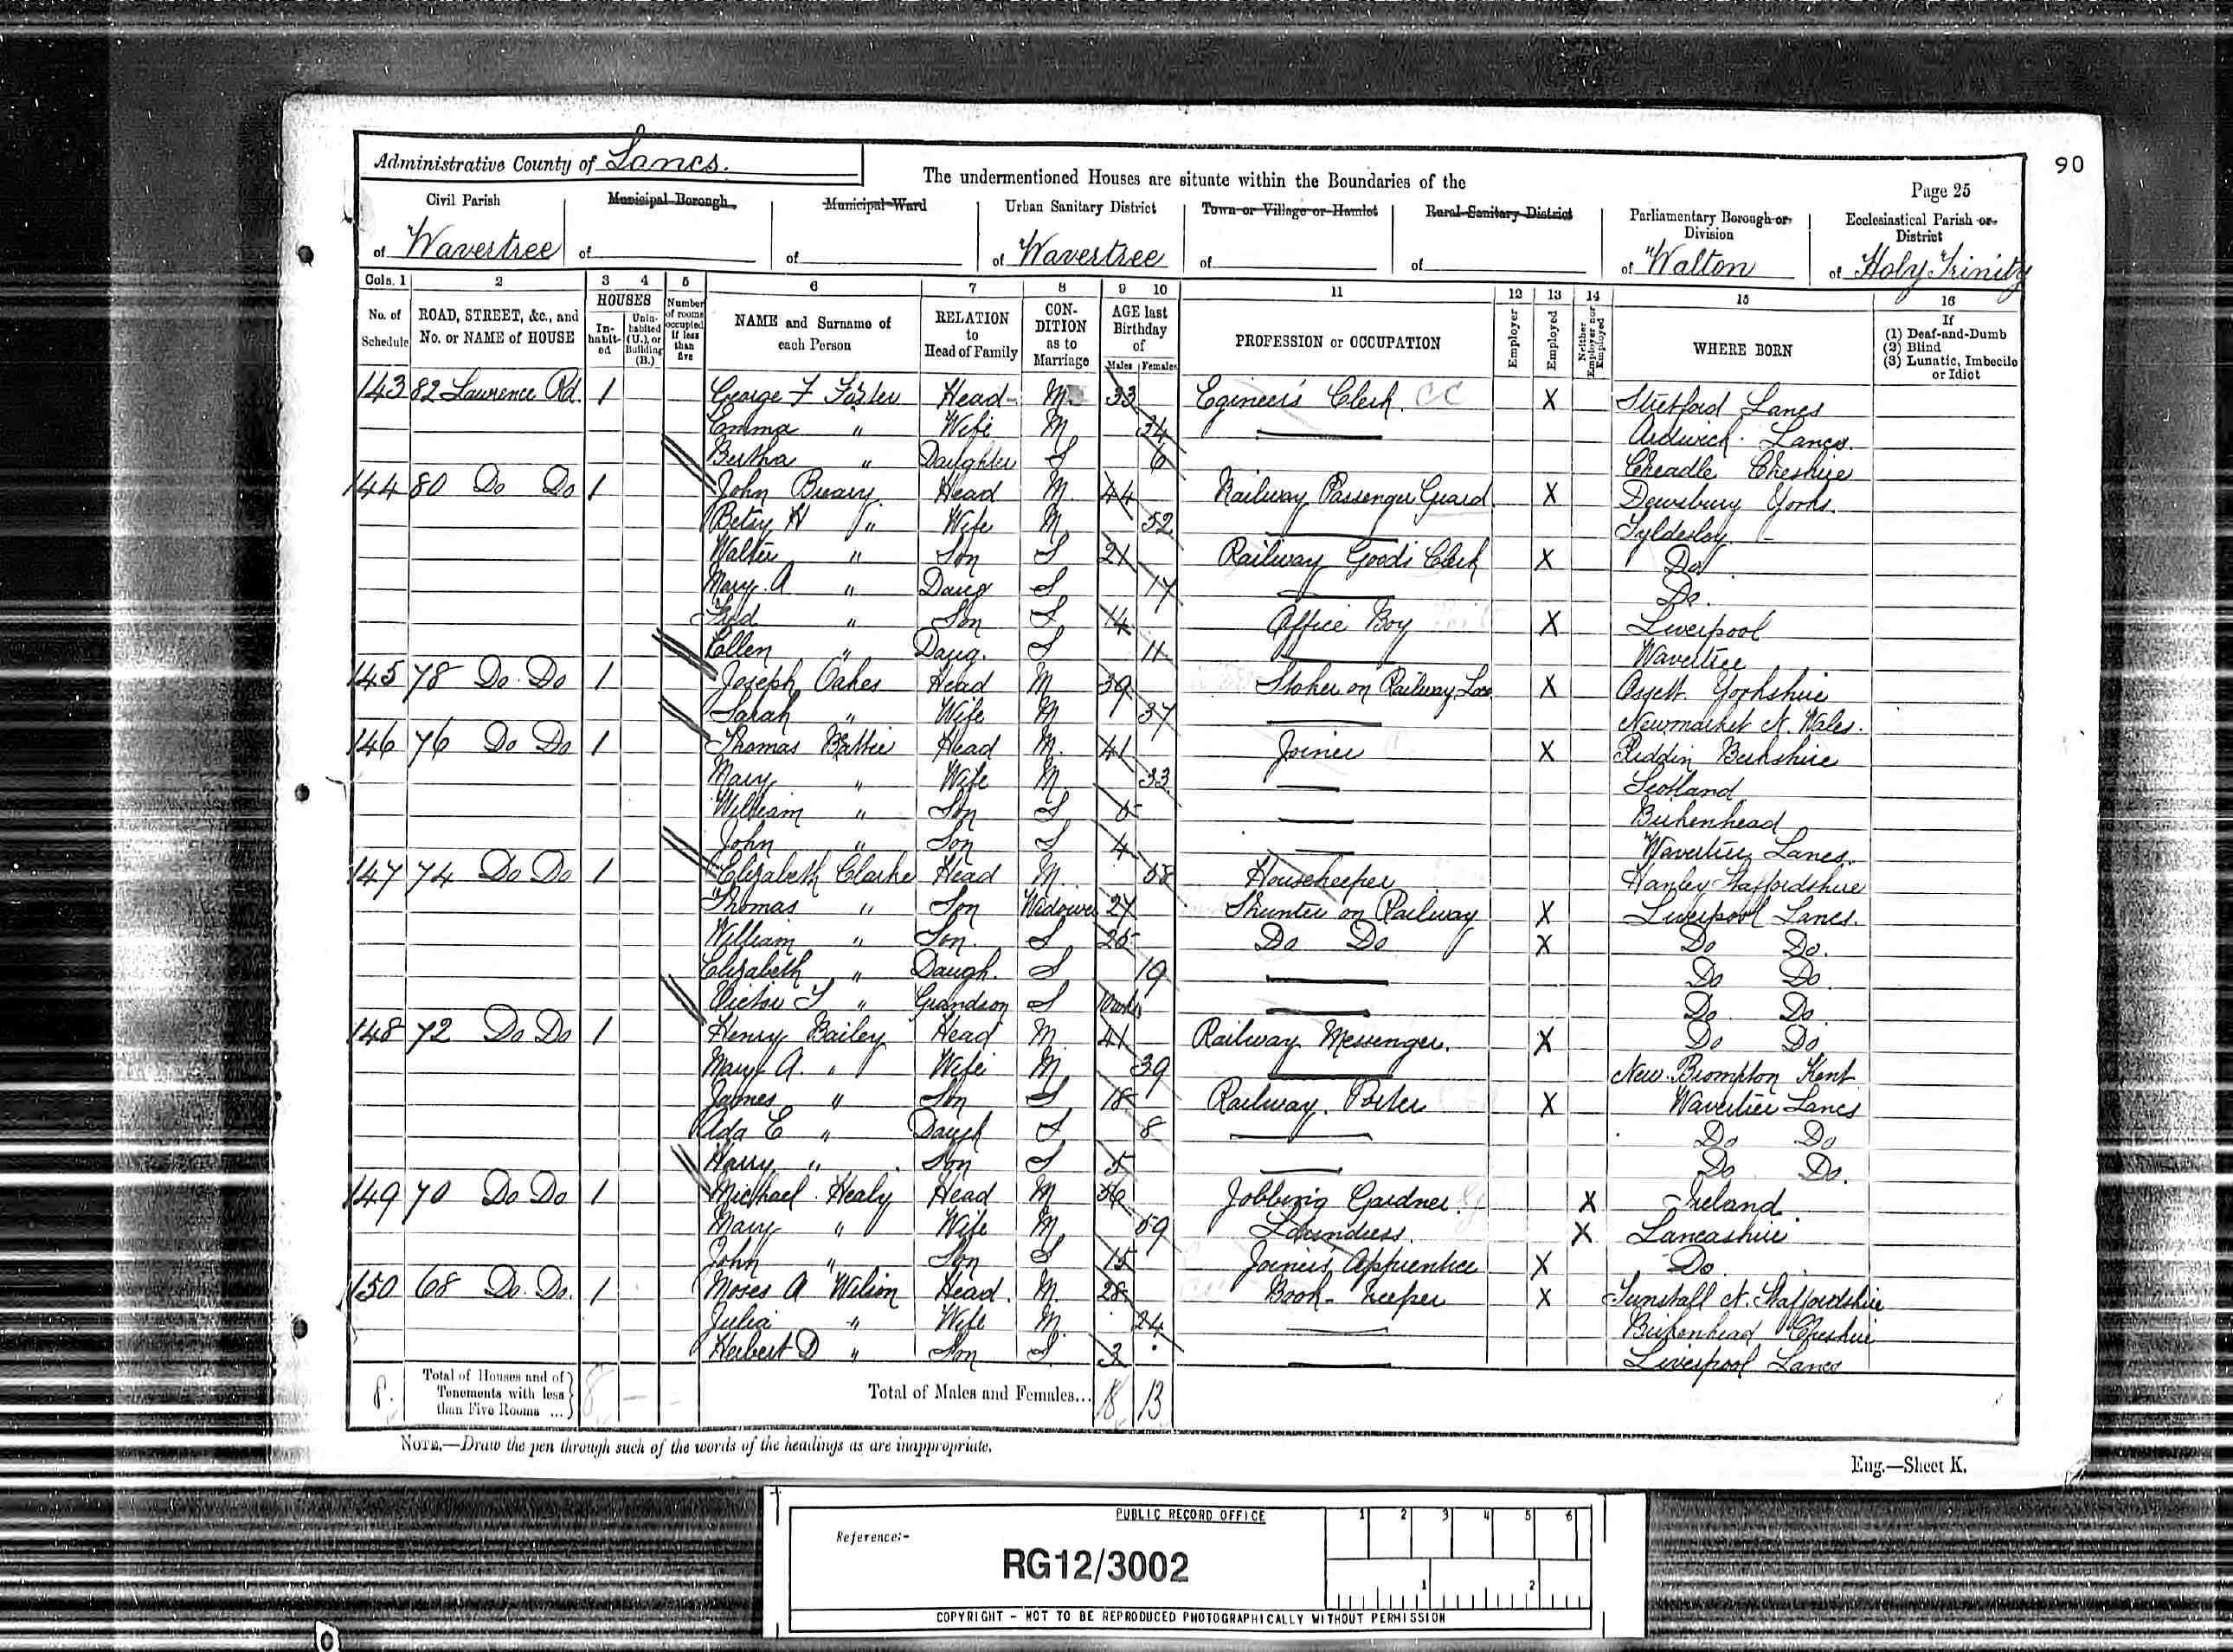 Administrative County of Lancs.
The undermentioned Houses are situate within the Boundaries of the
90
Page 25
Civil Parish
of Wavertree
Municipal Borough
of
Municipal Ward
of
Urban Sanitary District
of Wavertree
Town or Village or Hamlet
of
Rural Sanitary District
of
Parliamentary Borough or Division
of Walton
Ecclesiastical Parish or District
of Holy Trinity
Cols. 1 2 3 4 5 6 7 8 9 10 11 12 13 14 15 16
No. of Schedule
ROAD, STREET, &c., and No. or NAME of HOUSE
HOUSES
In-habit-ed
Unin-habited (U.), or Building (B.)
Number of rooms occupied if less than five
NAME and Surname of each Person
RELATION to Head of Family
CON-DITION as to Marriage
AGE last Birthday of
Males Females
PROFESSION or OCCUPATION
Employer
Employed
Neither Employer nor Employed
WHERE BORN
If
(1) Deaf-and-Dumb
(2) Blind
(3) Lunatic, Imbecile or Idiot
143 82 Lawrence Rd. 1 George F Foster Head M 33 Egineer's Clerk CC X Stretford Lancs
Emma " Wife M 34 Ardwick Lancs.
Bertha " Daughter S 6 Cheadle Cheshire
144 80 Do Do 1 John Breary Head M 44 Railway Passenger Guard X Dewsbury Yorks.
Betsy H " Wife M 52 Tyldesley
Walter " Son S 21 Railway Goods Clerk X Do
Mary A " Daug S 17 Do.
Fred " Son S 14 Office Boy X Liverpool
Ellen " Daug. S 11 Wavertree
145 78 Do Do 1 Joseph Oakes Head M 39 Stoker on Railway Loco X Ossett Yorkshire
Sarah " Wife M 37 Newmarket N. Wales.
146 76 Do Do 1 Thomas Battie Head M. 41 Joiner X Reddin Berkshire
Mary " Wife M 33 Scotland
William " Son S Birkenhead
John " Son S 4 Wavertree Lancs.
147 74 Do Do 1 Elizabeth Clarke Head M 58 Housekeeper Hanley Staffordshire
Thomas " Son Widower 27 Shunter on Railway X Liverpool Lancs.
William " Son. S 25 Do Do X Do Do.
Elizabeth " Daugh. S 19 Do Do
Victor " Grandson S Do Do
148 72 Do Do 1 Henry Bailey Head M 41 Railway Messenger. X Do Do
Mary A. " Wife M 39 New Brompton Kent
James " Son S 18 Railway Porter X Wavertree Lancs
Ada E " Daugh S 8 Do Do
Harry " Son S 5 Do Do.
149 70 Do Do 1 Michael Healy Head M 56 Jobbing Gardner X Ireland
Mary " Wife M 59 Laundress. X Lancashire
John " Son S 15 Joiners Apprentice X Do
150 68 Do. Do. 1 Moses A Wilson Head. M 28 Book-keeper X Tunstall N. Staffordshire
Julia " Wife M 24 Birkenhead Cheshire
Herbert D " Son S 3 Liverpool Lancs
8. Total of Houses and of Tenements with less than Five Rooms ... 8 - -
Total of Males and Females... 18 13
NOTE.—Draw the pen through such of the words of the headings as are inappropriate.
Eng.—Sheet K.
PUBLIC RECORD OFFICE
Reference:-
RG12/3002
1 2 3 4 5 6
1 2
COPYRIGHT - NOT TO BE REPRODUCED PHOTOGRAPHICALLY WITHOUT PERMISSION